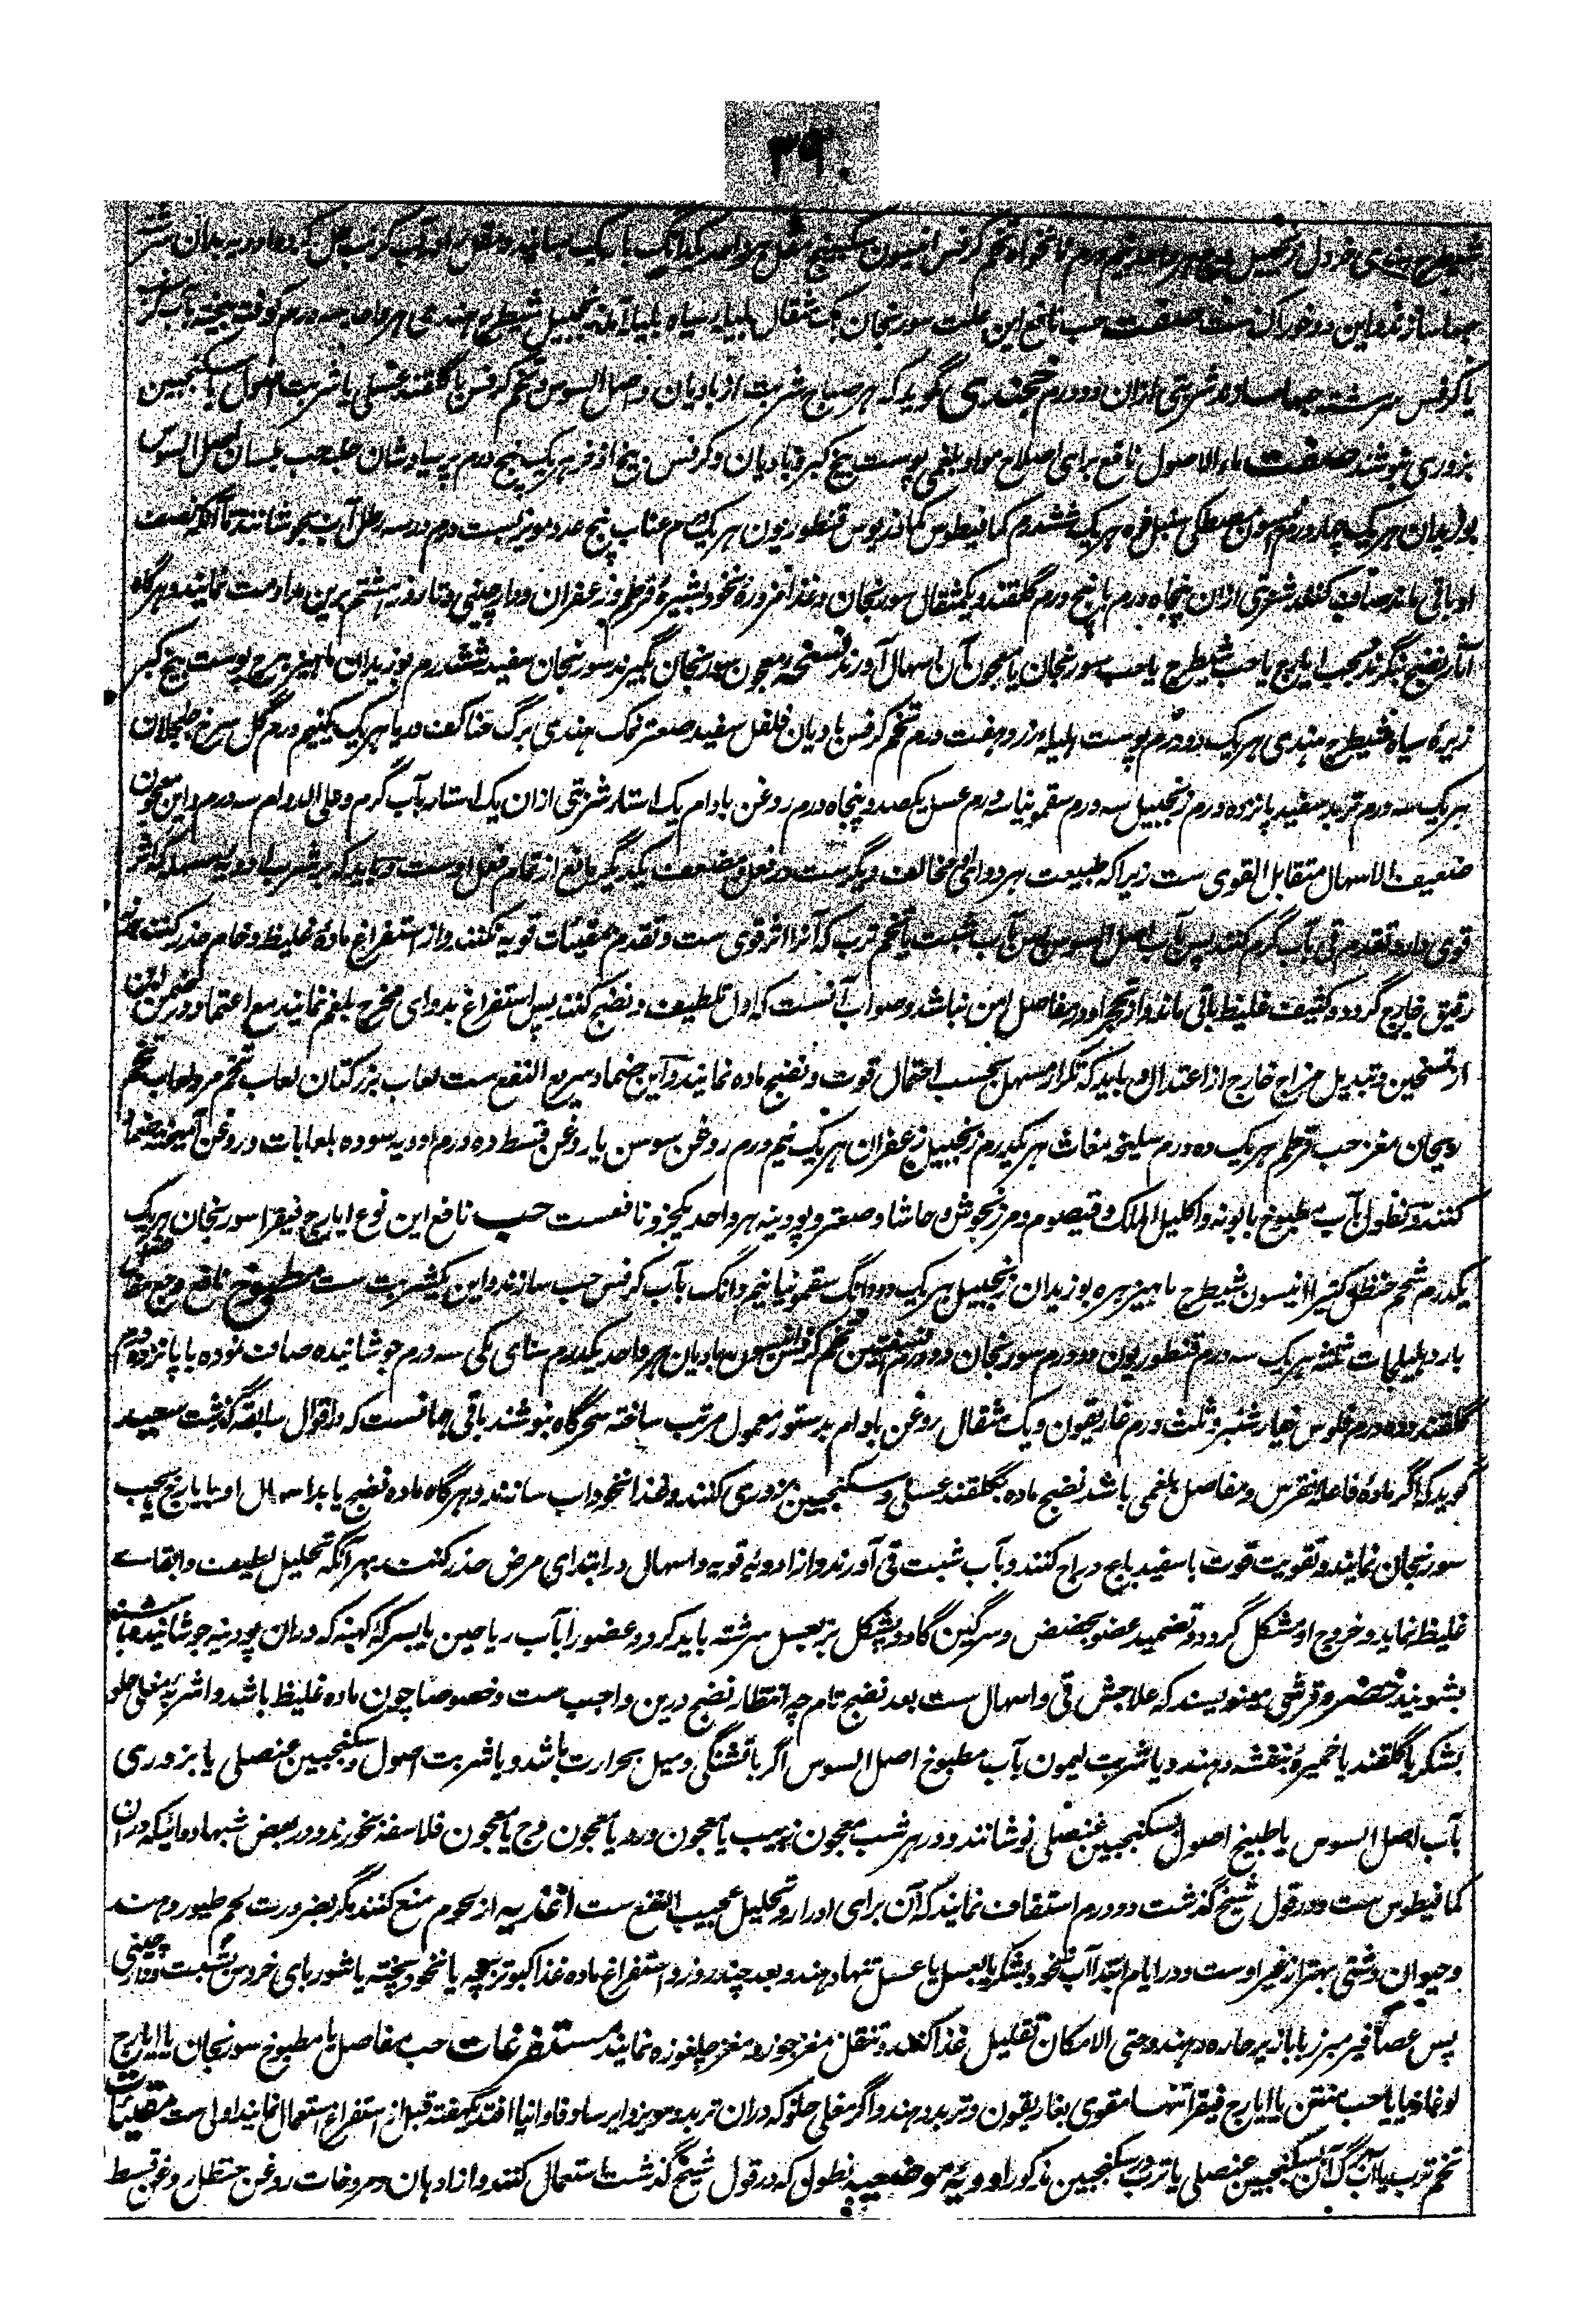 ۳۹۰
شیطرج هندی خردل زنجبیل هر واحد نیم درم نانخواه تخم کرفس انیسون سکبینج مقل هر واحد یکدانگ باریک بسایند و مقل را در آب کرنب حل کرده ادویه بدان سرشته
حبها سازند و این دو خوراک ست صفت حب نافع این علت سورنجان یک مثقال هلیله سیاه بلیله آمله زنجبیل شیطرج هندی هر واحد سه درم کوفته بیخته بآب کرنب
یا کرفس سرشته حبها سازند شربتی ازان دو درم خجندی گوید که هر صباح شربت از بادیان و اصل السوس و تخم کرفس با گلقند عسلی یا شربت اصول یا سکنجبین
بزوری نوشند صفت ماء الاصول نافع برای اصلاح مواد بلغمی پوست بیخ کبر و بادیان و کرفس و بیخ اذخر هر یک پنج درم پرسیاوشان حلبه حب بلسان اصل السوس
بوزیدان هر یک چهار درم انیسون مصطکی سنبل فوه هر یک ششدرم کمافیطوس کمادریوس قنطوریون هر یک درم عناب پنج عدد مویز بست درم در سه رطل آب بجوشانند تا آنکه نصف
او باقی ماند صاف کنند شربتی ازان پنجاه درم با پنج درم گلقند و یکمثقال سورنجان و غذا مزوره نخود بشیره قرطم و زعفران و دارچینی و تا روز هشتم برین مداومت نمایند و هرگاه
آثار نضج بنگرند بحب ایارج یا حب شیطرج یا حب سورنجان یا معجون آن اسهال آورند نسخه معجون سورنجان بگیرند سورنجان سفید ششدرم بوزیدان ماهیزهرج پوست بیخ کبر
زیره سیاه شیطرج هندی هر یک دو درم پوست هلیله زرد هفت درم تخم کرفس بادیان فلفل سفید صعتر نمک هندی برگ حنا کف دریا هر یک یکنیم درم گل سرخ جلجلان
هر یک سه درم تربد سفید پانزده درم زنجبیل سه درم سقمونیا درم عسل یکصد و پنجاه درم روغن بادام یک استار شربتی ازان یک استار بآب گرم و علی الدوام سه درم و این معجون
ضعیف الاسهال متقابل القوی ست زیرا که طبیعت هر دوائی مخالف دیگرست در فعل و مضعف یکدیگر مانع از تمام فعل اوست و باید که بر شرب ادویه مسهله که اثر
قوی دارد تقدم قی بآب گرم کنند پس بآب اصل السوس پس بآب شبت یا تخم ترب که آنرا اثر قوی ست و تقدم مقیئات قویه نکنند و از استفراغ ماده غلیظ و خام حذر کنند
رقیق خارج گردد و کثیف غلیظ باقی ماند و از تحجر او در مفاصل امن نباشد و صواب آنست که اول تلطیف و نضج کنند پس استفراغ بدوای مخرج بلغم نمایند مع اعتماد درین
از تسخین و تبدیل مزاج خارج از اعتدال و باید که تکرار مسهل بحسب احتمال قوت و نضج ماده نمایند و این ضماد سریع النفع ست لعاب بزرکتان لعاب تخم مرو لعاب تخم
ریحان مغز حب قرطم هر یک ده درم سلیخه مغاث هر یکدرم زنجبیل زعفران هر یک نیم درم روغن سوسن یا روغن قسط ده درم ادویه سوده بلعابات و روغن آمیخته ضماد
کنند و نطول بآب مطبوخ بابونه و اکلیل الملک و قیصوم و مرزنجوش و حاشا و صعتر و پودینه هر واحد یکجزو نافعست حب نافع این نوع ایارج فیقرا سورنجان هر یک
یکدرم شحم حنظل کتیرا انیسون شیطرج ماهیزهره بوزیدان زنجبیل هر یک دو دانگ سقمونیا نیم دانگ بآب کرفس حب سازند و این یکشربت ست مطبوخ نافع وجع مفاصل
بارد هلیلجات ثلثه هر یک سه درم قنطوریون دو درم سورنجان دو درم افسنتین تخم کرفس انیسون بادیان هر واحد یکدرم سنای مکی سه درم جوشانیده صاف نموده با پانزده درم
گلقند و ده درم فلوس خیارشنبر و ثلث درم غاریقون و یک مثقال روغن بادام بدستور معمول مرتب ساخته سحرگاه بنوشند باقی همانست که در اقوال سابقه گذشت سعید
گوید که اگر ماده فاعله نقرس و مفاصل بلغمی باشد نضج ماده بگلقند عسلی و سکنجبین بزوری کنند و غذا نخوداب سازند و هرگاه ماده نضج یابد اسهال او بایارج یا بحب
سورنجان نمایند و تقویت قوت با سفیدباج دراج کنند و بآب شبت قی آورند و از ادویه قویه و اسهالی در ابتدای مرض حذر کنند بهر آنکه تحلیل لطیف و ابقای
غلیظ نماید و خروج او مشکل گردد و تضمید عضو بحضض و سرگین گاو و پشکل بز بعسل سرشته باید کرد و عضو را بآب ریاحین یا بسرکه کهنه که دران پودینه جوشانیده باشند
بشویند خضر و قرشی مینویسند که علاجش قی و اسهال ست بعد نضج تام چه انتظار نضج درین واجب ست و خصوصا چون ماده غلیظ باشد و اشربه مغلی حلو
بشکر یا گلقند یا خمیره بنفشه دهند و یا شربت لیمون بآب مطبوخ اصل السوس اگر با تشنگی و میل بحرارت باشد و یا شربت اصول و سکنجبین عنصلی یا بزوری
بآب اصل السوس یا طبیخ اصول سکنجبین عنصلی نوشانند و در هر شب معجون زبیب یا معجون ورد یا معجون وج یا معجون فلاسفه بخورند و در بعض شبها دوائیکه دران
کمافیطوس ست و در قول شیخ گذشت دو درم استفاف نمایند که آن برای ادرار و تحلیل عجیب النفع ست اغذیه از لحوم منع کنند مگر بضرورت لحم طیور دهند
و حیوان دشتی بهتر از غیر اوست و در ایام ابتدا آب نخود بشکر یا بعسل یا عسل تنها دهند و بعد چند روز و استفراغ ماده غذا کبوتر بچه یا نخود پخته یا شوربای خروس بشبت و دارچینی
پس عصافیر مبزر یا بازیر حاره دهند و حتی الامکان تقلیل غذا کنند و تنقل مغز جوز و مغز چلغوزه نمایند مستفرغات حب مفاصل یا مطبوخ سورنجان یا ایارج
لوغاذیا یا حب منتن یا ایارج فیقرا تنها مقوی بغاریقون و تربد دهند و اگر مغلی حلو که دران تربد و مویز و ایرسا و فاوانیا افتد یکهفته قبل از استفراغ استعمال نمایند اولی ست مقیئات
تخم ترب یا آب برگ آن بسکنجبین عنصلی یا ترب و سکنجبین مذکور ادویه موضعیه نطولی که در قول شیخ گذشت استعمال کنند و از ادهان و مروخات روغن حنظل روغن قسط